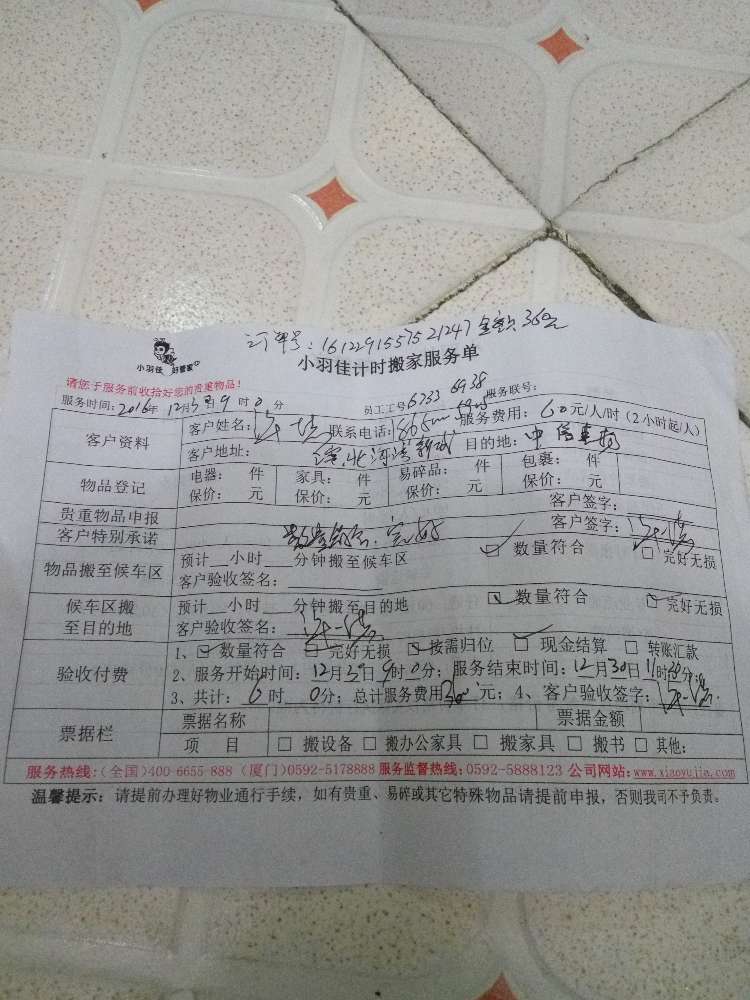 订单号：1612291557521247 金额：360元
小羽佳 好管家
小羽佳计时搬家服务单
请您于服务前收拾好您的贵重物品！
服务时间：2016年12月30日9时0分 员工工号6733 6938 服务联号：
客户资料 客户姓名： 联系电话： 服务费用：60元/人/时（2小时起/人）
客户地址： 目的地：
物品登记 电器： 件 家具： 件 易碎品： 件 包裹： 件
保价： 元 保价： 元 保价： 元 保价： 元
贵重物品申报 客户签字：
客户特别承诺 完好 客户签字：
物品搬至候车区 预计__小时__分钟搬至候车区 数量符合 完好无损
客户验收签名：
候车区搬至目的地 预计__小时__分钟搬至目的地 数量符合 完好无损
客户验收签名：
验收付费 1、 数量符合 完好无损 按需归位 现金结算 转账汇款
2、服务开始时间：12月30日9时0分；服务结束时间：12月30日11时 分；
3、共计：6时0分；总计服务费用360元；4、客户验收签字：
票据栏 票据名称 票据金额
项 目 搬设备 搬办公家具 搬家具 搬书 其他:
服务热线:(全国)400-6655-888 (厦门)0592-5178888 服务监督热线:0592-5888123 公司网站:www.xiaoyujia.com
温馨提示：请提前办理好物业通行手续，如有贵重、易碎或其它特殊物品请提前申报，否则我司不予负责。